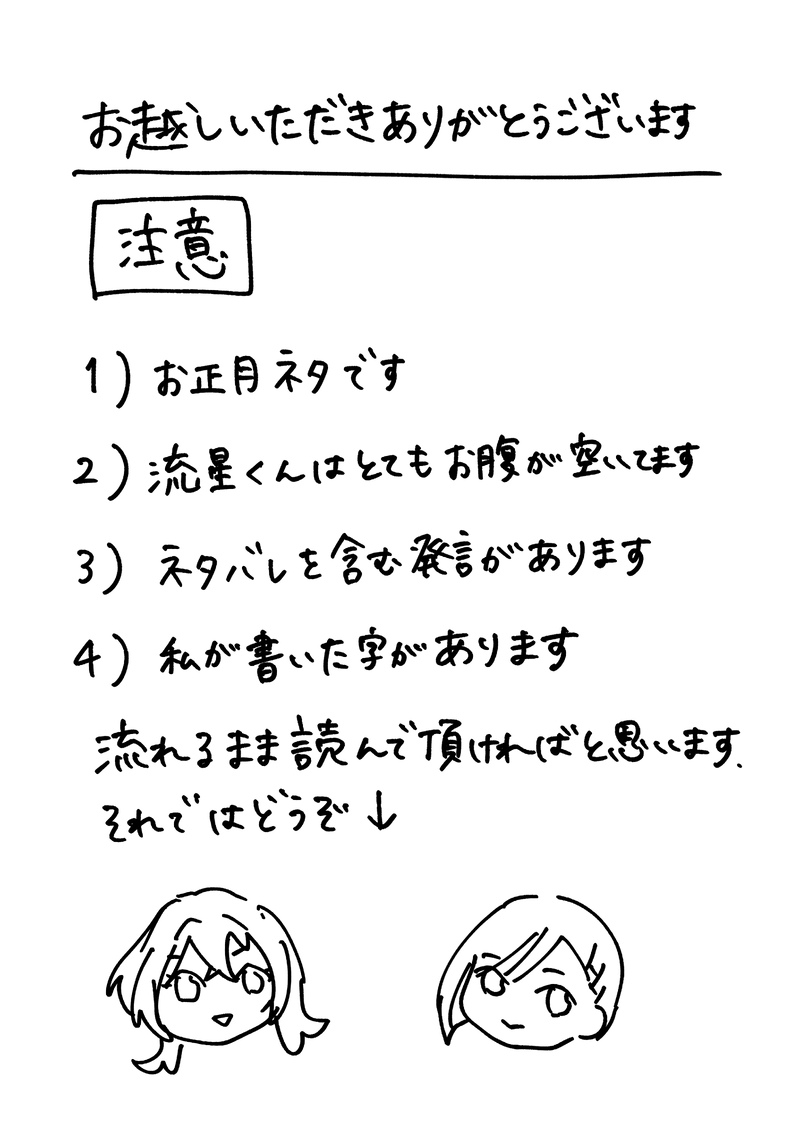 お越しいただきありがとうございます
注意
1) お正月ネタです
2) 流星くんはとてもお腹が空いてます
3) ネタバレを含む発言があります
4) 私が書いた字があります
流れるまま読んで頂ければと思います.
それではどうぞ↓